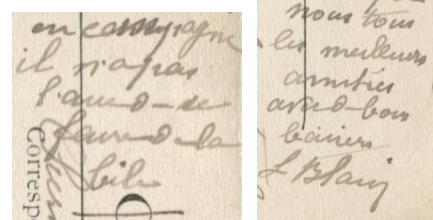 en campagne
il n'a pas
l'aure d-se
faire de la
bile
Corresp
nous tous
les meilleurs
amitiés
avec d-bons
baisers
L Blain